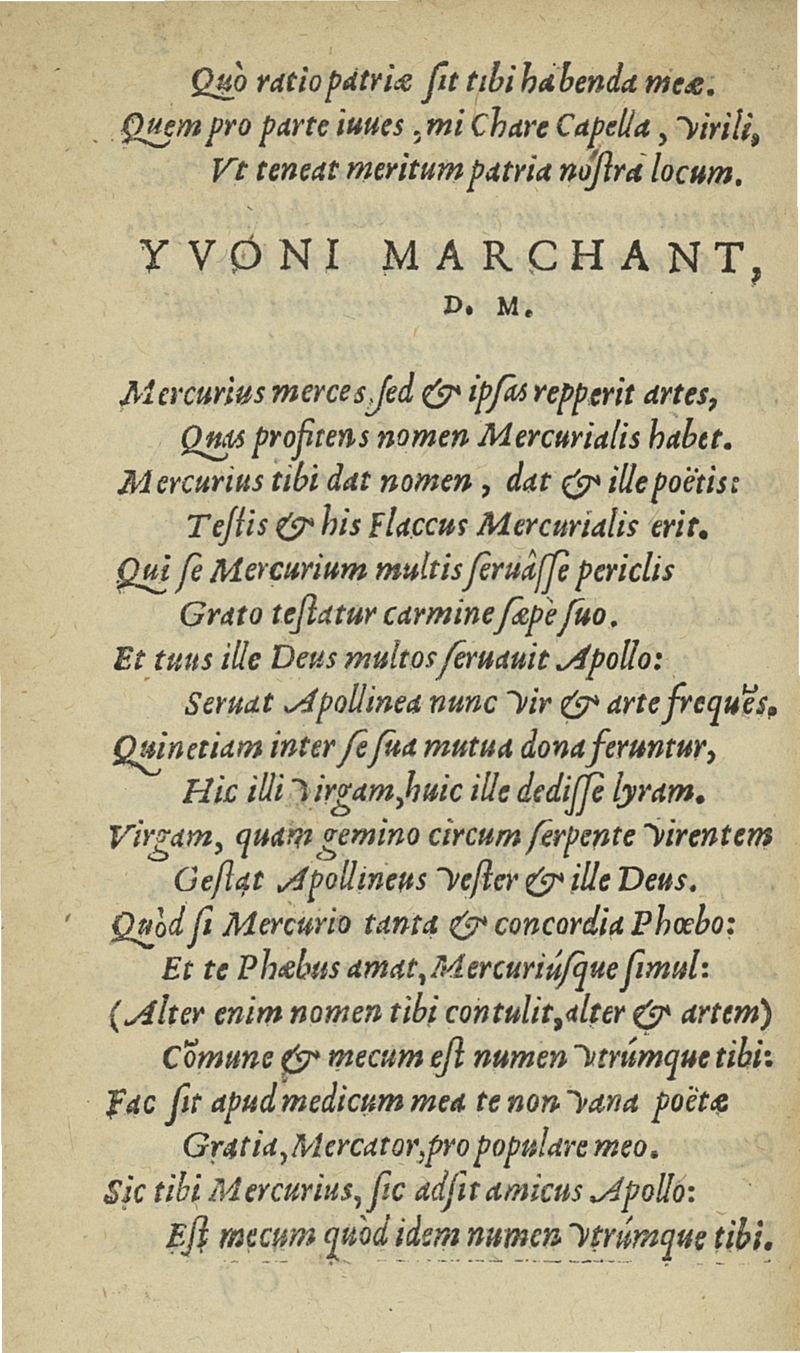 Quò ratio patriæ ſit tibi habenda meæ.
Quem pro parte iuues, mi Chare Capella, virili,
Vt teneat meritum patria noſtra locum.
YVONI MARCHANT,
D. M.
Mercurius merces, ſed & ipſas repperit artes,
Quas profitens nomen Mercurialis habet.
Mercurius tibi dat nomen, dat & ille poëtis:
Teſtis & his Flaccus Mercurialis erit.
Qui ſe Mercurium multis ſeruâſſe periclis
Grato teſtatur carmine ſæpè ſuo.
Et tuus ille Deus multos ſeruauit Apollo:
Seruat Apollinea nunc vir & arte frequẽs.
Quinetiam inter ſe ſua mutua dona feruntur,
Hic illi virgam, huic ille dediſſe lyram.
Virgam, quam gemino circum ſerpente virentem
Geſtat Apollineus veſter & ille Deus.
Quòd ſi Mercurio tanta & concordia Phœbo:
Et te Phæbus amat, Mercuriúſque ſimul:
(Alter enim nomen tibi contulit, alter & artem)
Cõmune & mecum eſt numen vtrúmque tibi:
Fac ſit apud medicum mea te non vana poëtæ
Gratia, Mercator, pro populare meo.
Sic tibi Mercurius, ſic adſit amicus Apollo:
Eſt mecum quòd idem numen vtrúmque tibi.